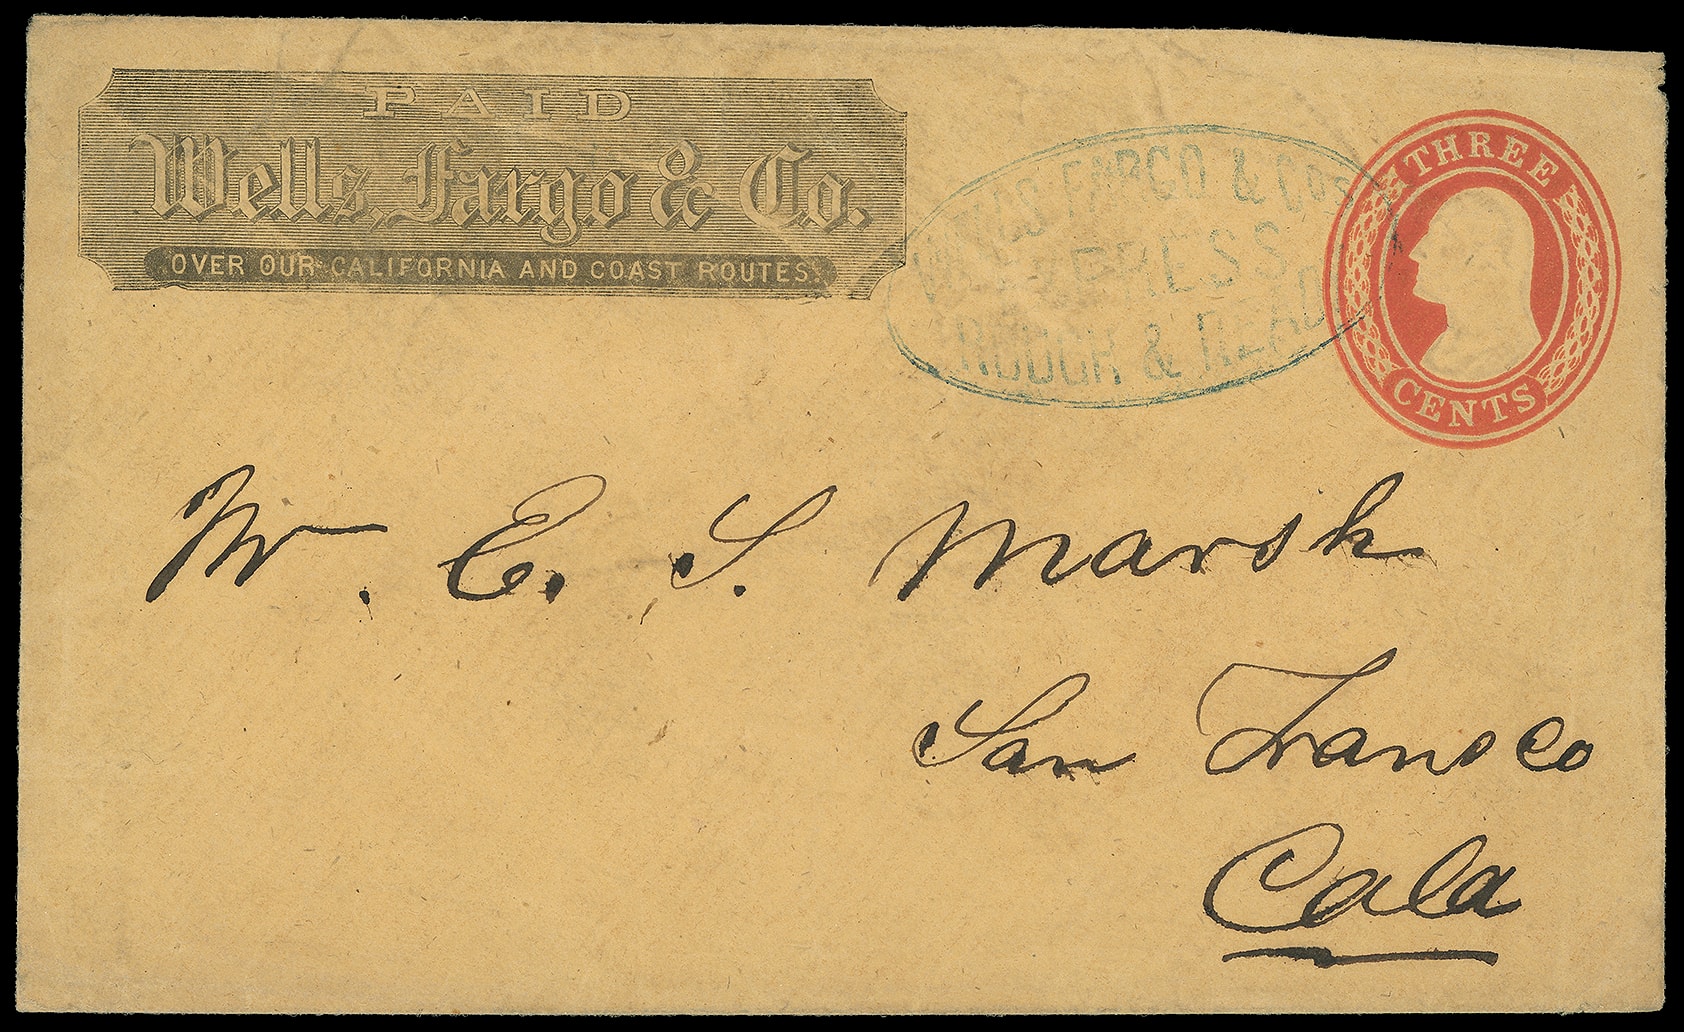 PAID
Wells, Fargo & Co.
OVER OUR CALIFORNIA AND COAST ROUTES.
WELLS FARGO & COS
EXPRESS
ROUGH & READY
THREE
CENTS
Mr. E. S. Marsh
San Fransco
Cala